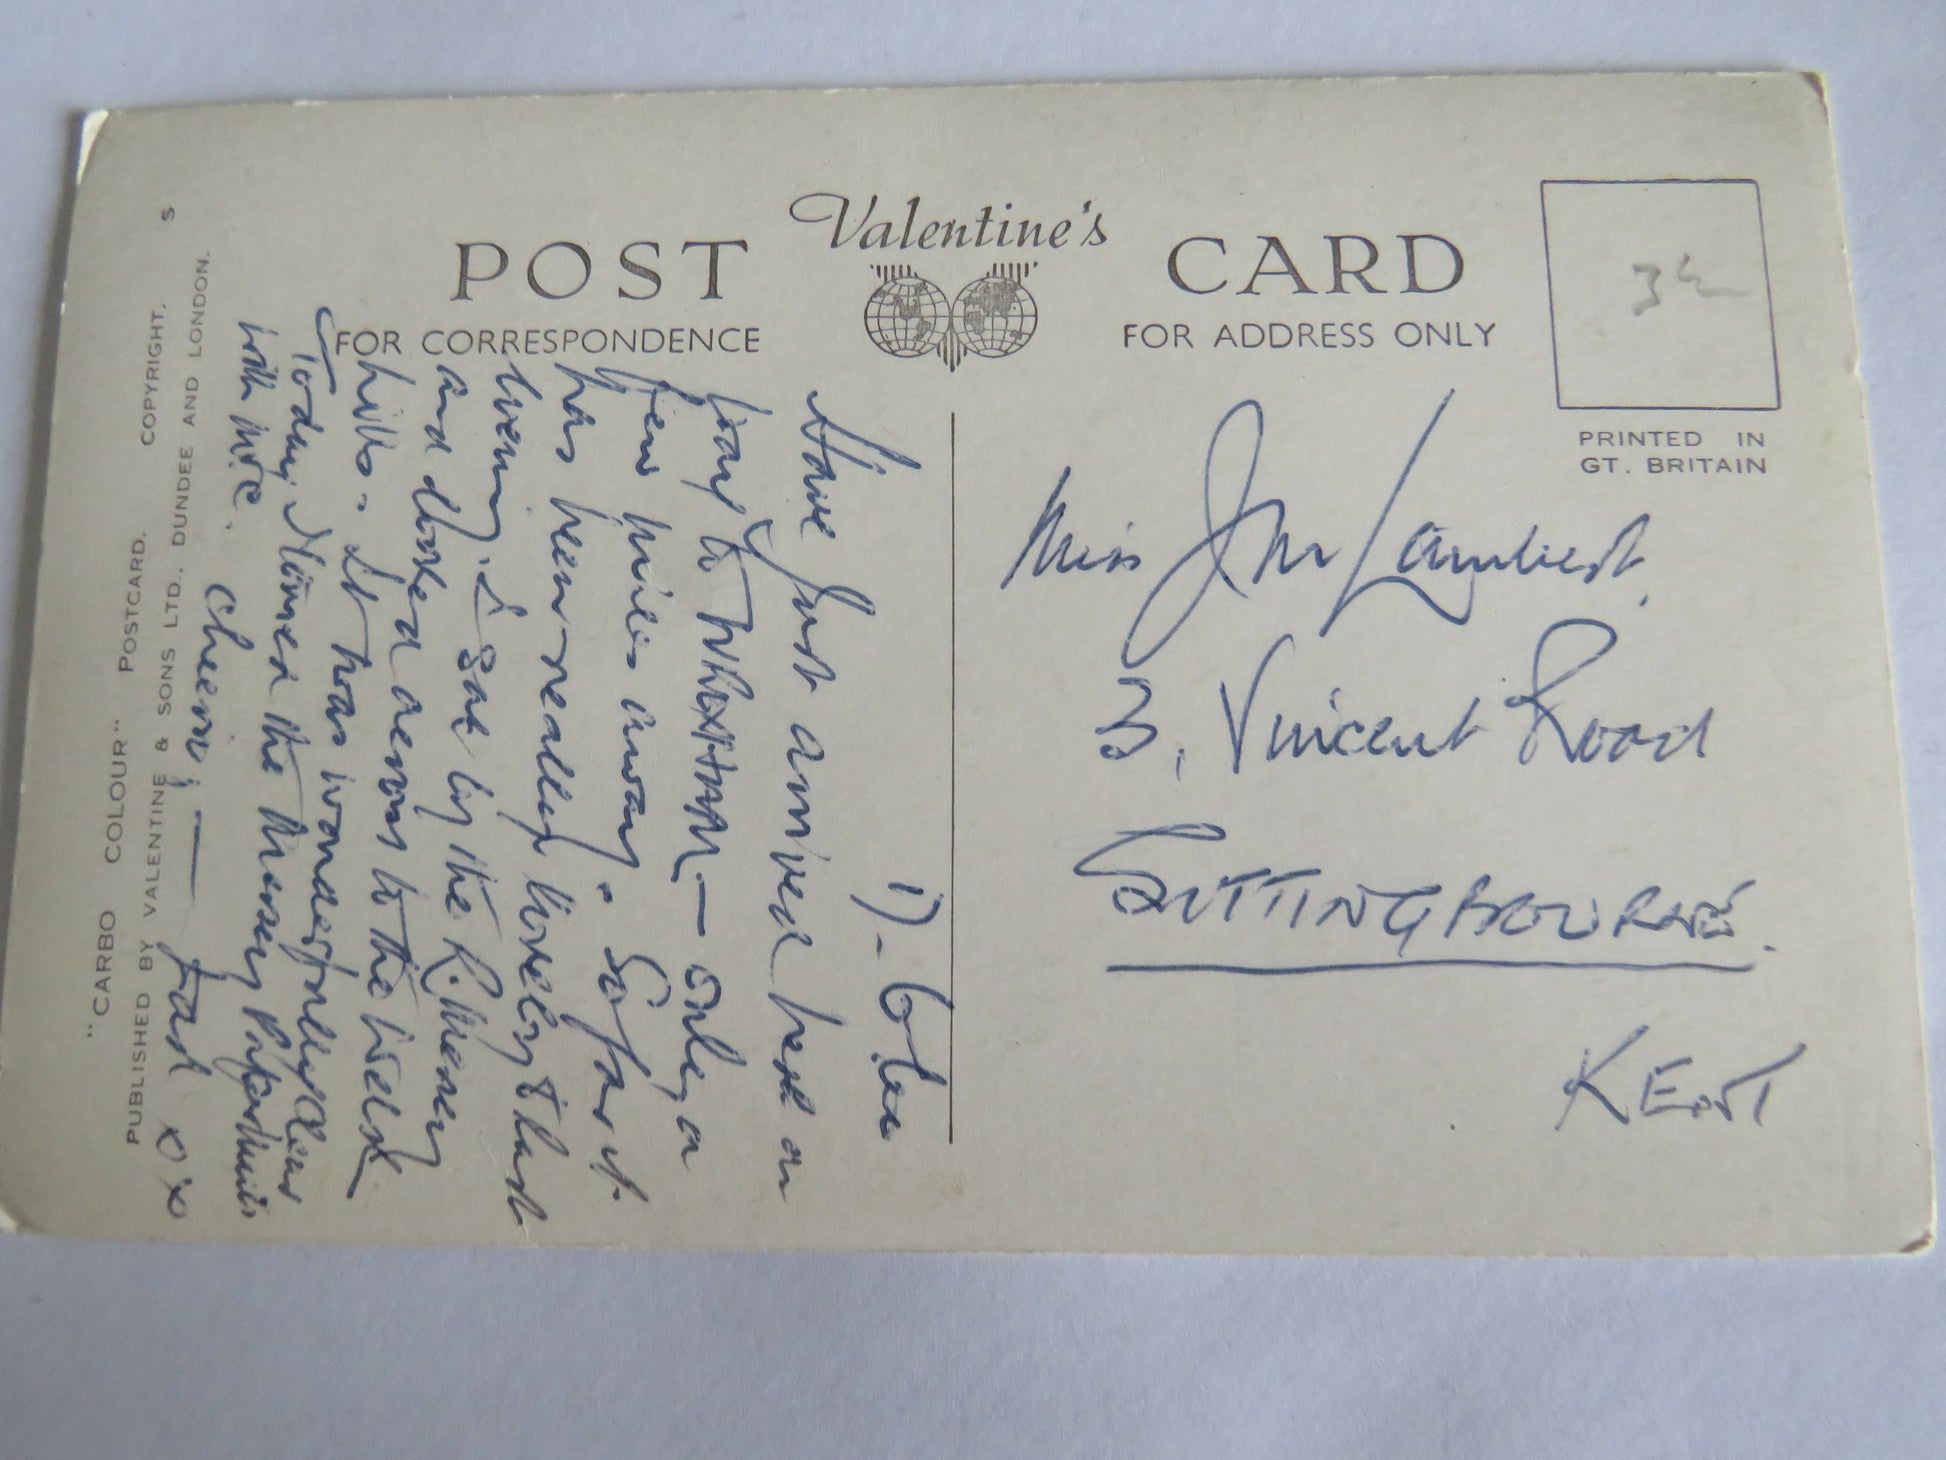 Valentine's
POST CARD
FOR CORRESPONDENCE
FOR ADDRESS ONLY
3½
PRINTED IN
GT. BRITAIN
Have just arrived here on
way to WREXHAM — only a
few miles away. So far it
has been really lovely & last
evening I sat by the R. Mersey
and looked across to the Welsh
hills. It was wonderfully clear
Today I viewed the Mersey
with
Cheerio! — Dad xox
Miss J M Lambert.
3, Vincent Road
SITTINGBOURNE.
KENT
"CARBO COLOUR" POSTCARD. COPYRIGHT. S
PUBLISHED BY VALENTINE & SONS LTD., DUNDEE AND LONDON.